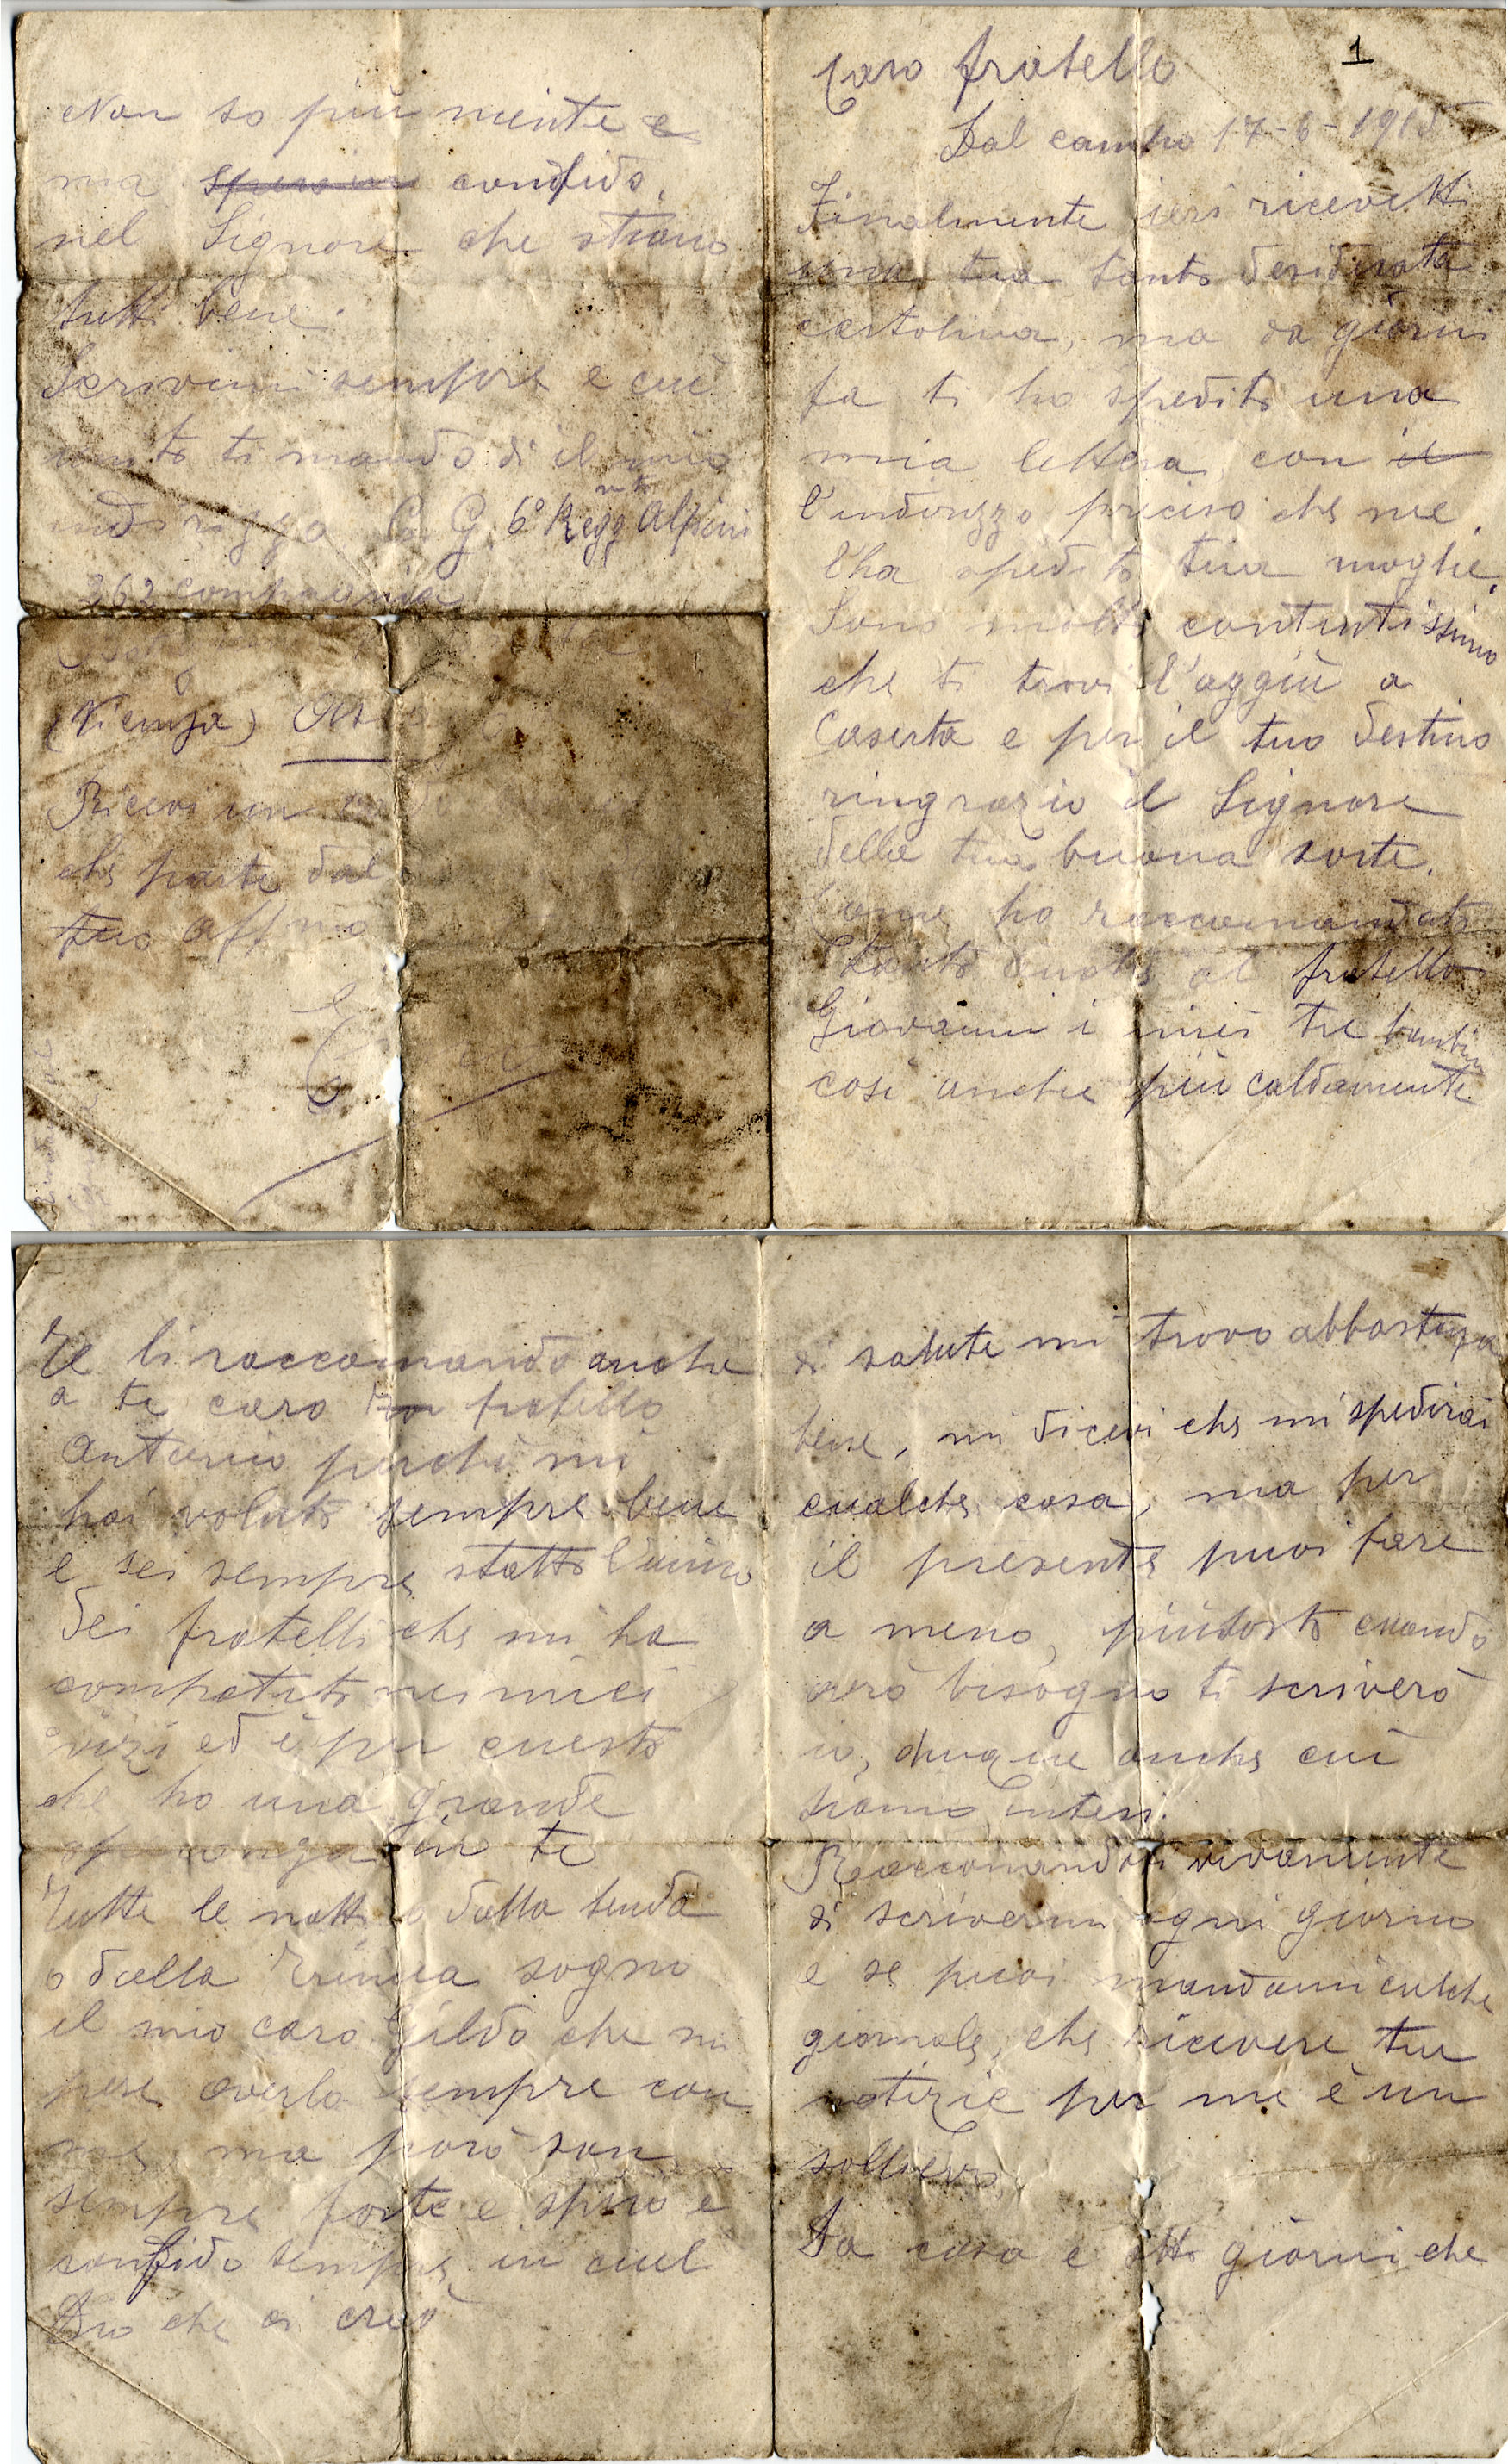 1
Caro fratello
Dal campo 17-6-1915
Finalmente ieri ricevetti
una tua tanto desiderata
cartolina, ma da giorni
fa ti ho spedito una
mia lettera con il
l'indirizzo preciso che me
l'ha spedito tua moglie.
Sono molto contentissimo
che ti trovi l'aggiù a
Caserta e per il tuo destino
ringrazio il Signore
della tua buona sorte.
Come ho raccomandato
tanto anche al fratello
Giovanni i miei tre bambini
così anche più caldamente
Te li raccomando anche
a te caro fratello
Antonio perchè mi
hai voluto sempre bene
e sei sempre statto l'unico
dei fratelli che mi ha
compatito nei miei
vizi ed è per cuesto
che ho una grande
in te
Tutte le notti o dalla tenda
o dalla trincea sogno
il mio caro Gildo che mi
pare averlo sempre con
me, ma però son
sempre forte e spero e
confido sempre in cuel
Dio che ci creò
di salute mi trovo abbastanza
bene, mi dicevi che mi spedirai
cualche cosa, ma per
il presente puoi fare
a meno, piùtosto cuando
avrò bisogno ti scriverò
io, dunque anche cui
siamo intesi.
Raccomandoti vivamente
di scrivermi ogni giorno
e se puoi mandami cualche
giornale, che ricevere tue
notizie per me è un
sollievo
Da casa è otto giorni che
Non so più niente e
ma confido
nel Signore che stiano
tutti bene.
Scrivimi sempre e cui
unito ti mando di il mio
indirizzo C. G. 6° Regg.nto Alpini
262 compagnia
(Vicenza)
Ricevi un
che parte dal
tuo Aff.mo